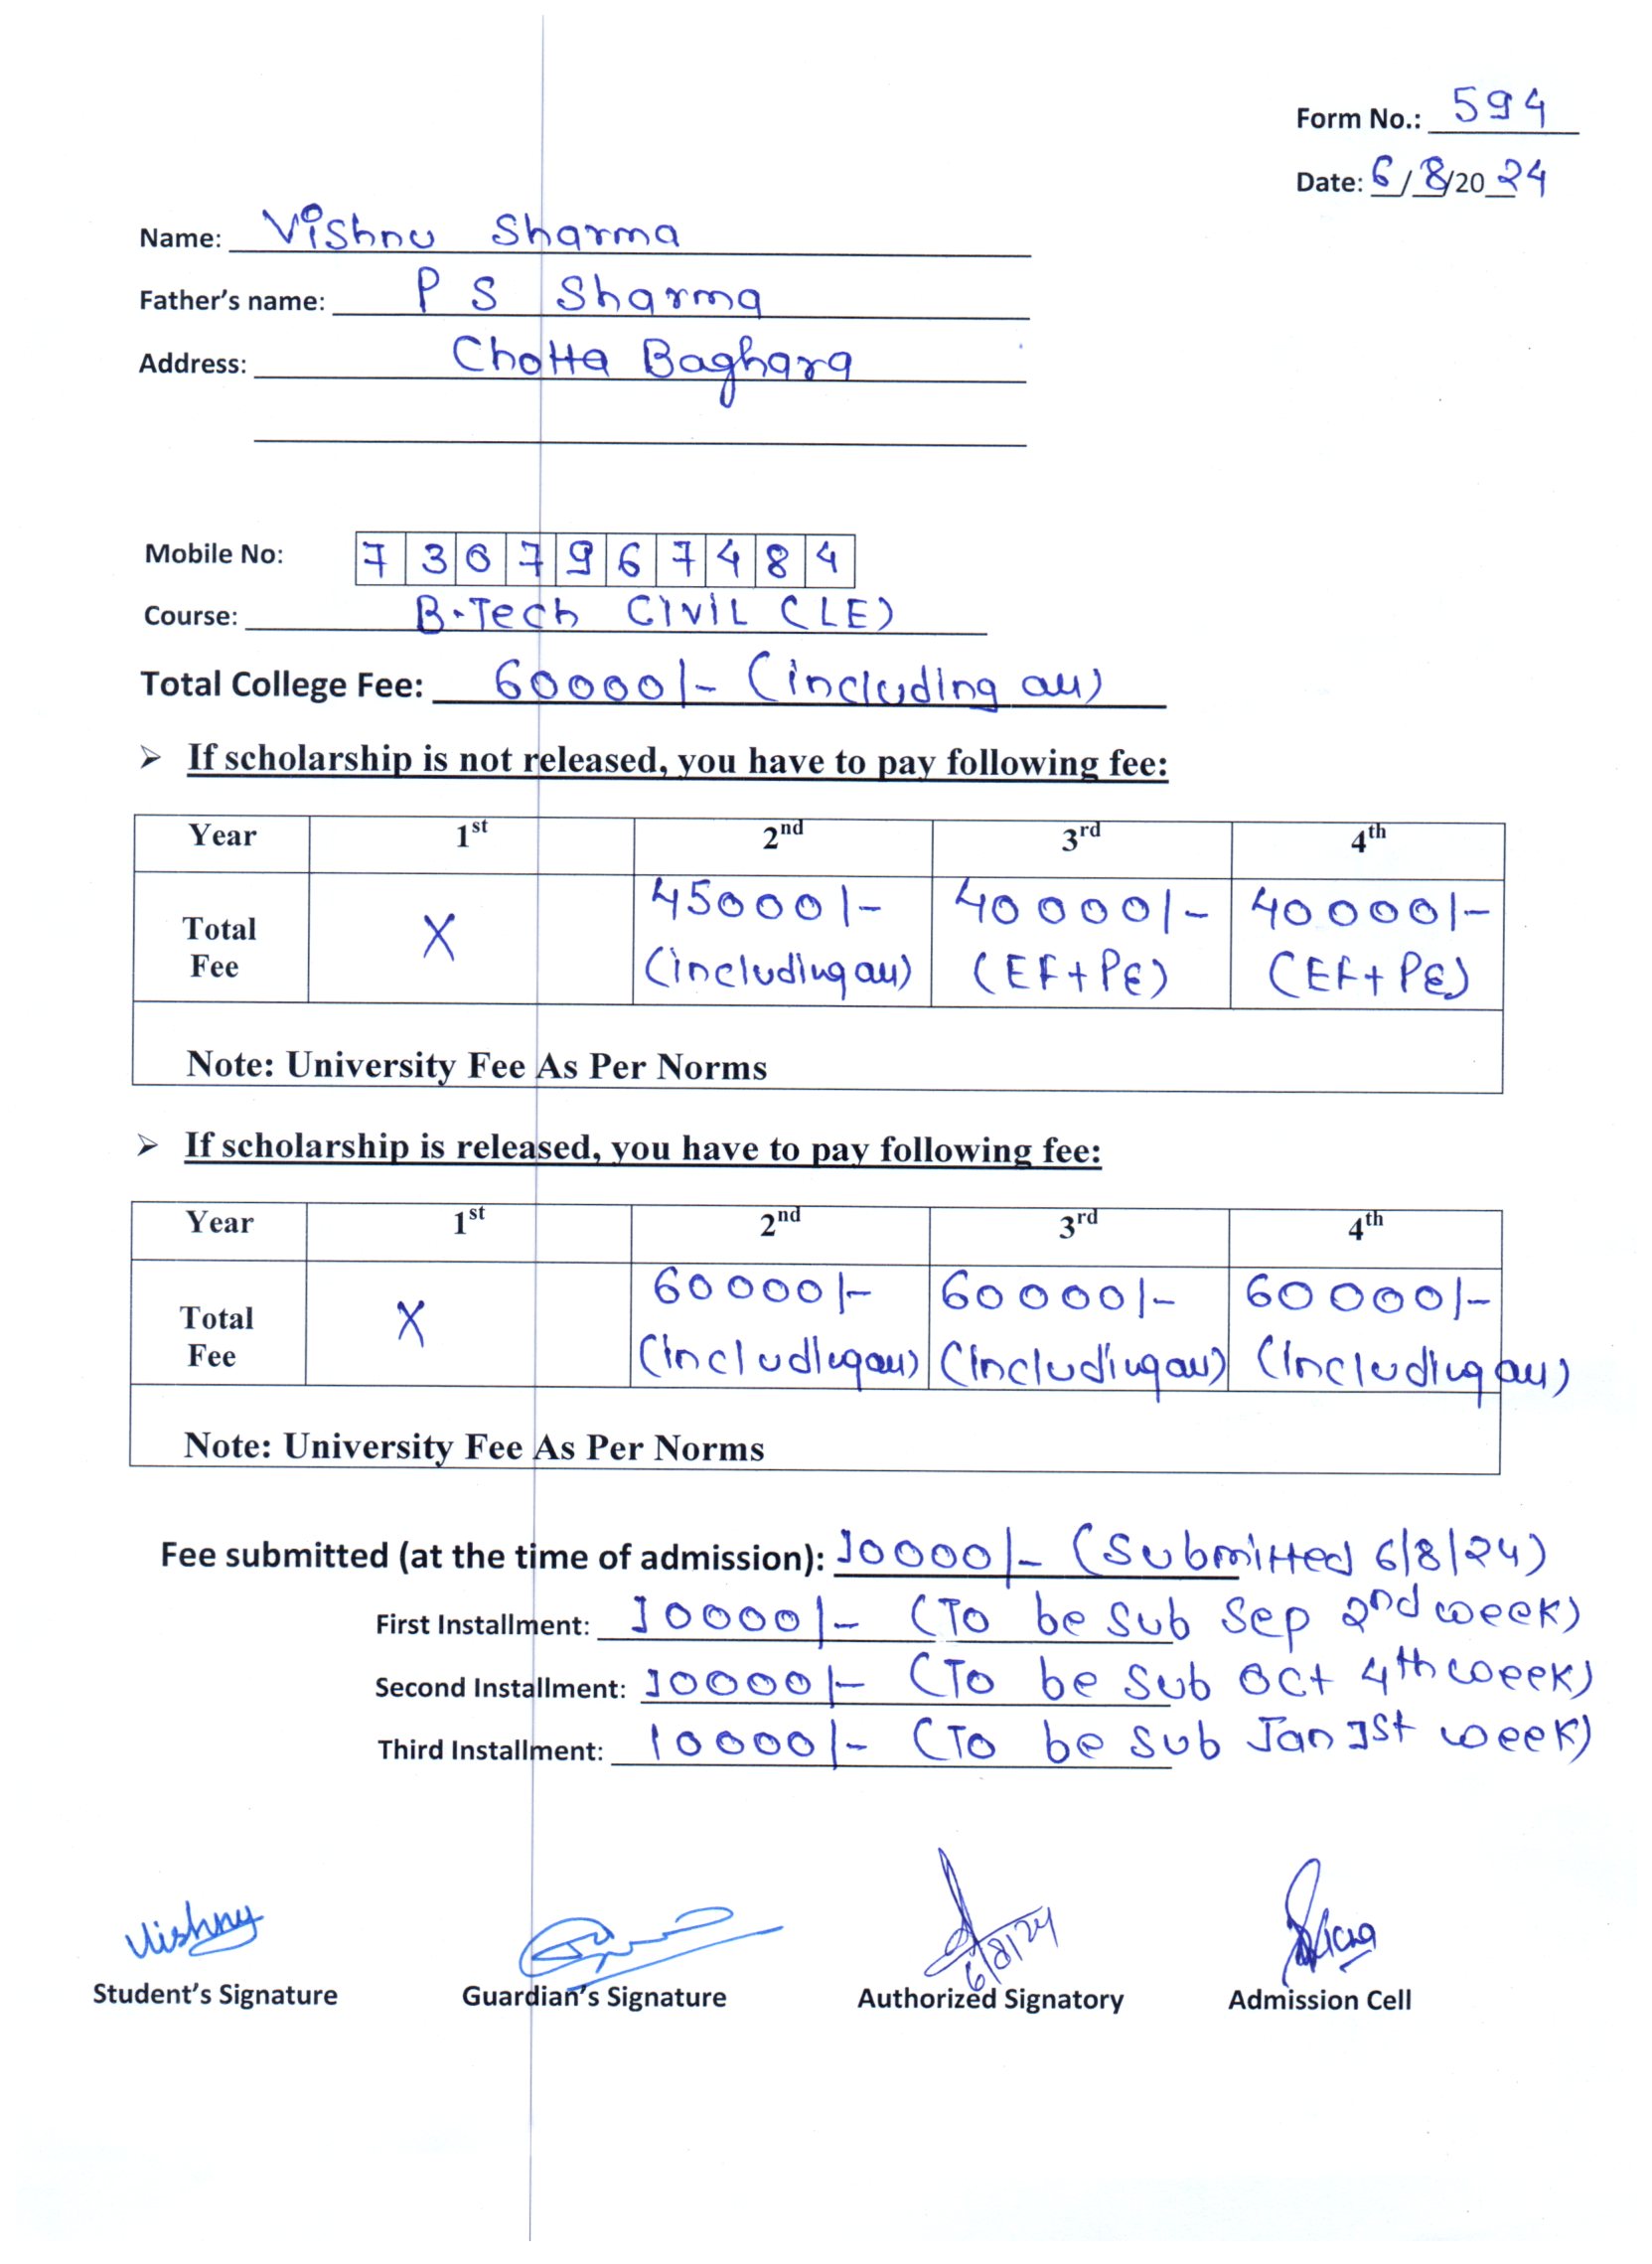 Form No.: 594
Date: 6/8/2024
Name: Vishnu Sharma
Father's name: P S Sharma
Address: Chotta Baghara
Mobile No: 7367967484
Course: B.Tech CIVIL (LE)
Total College Fee: 60000/- (including all)
➢ If scholarship is not released, you have to pay following fee:
Year 1st 2nd 3rd 4th
Total Fee X 45000/- (including all) 40000/- (EF+PE) 40000/- (EF+PE)
Note: University Fee As Per Norms
➢ If scholarship is released, you have to pay following fee:
Year 1st 2nd 3rd 4th
Total Fee X 60000/- (Including all) 60000/- (Including all) 60000/- (Including all)
Note: University Fee As Per Norms
Fee submitted (at the time of admission): 10000/- (Submitted 6/8/24)
First Installment: 10000/- (To be Sub Sep 2nd week)
Second Installment: 10000/- (To be Sub Oct 4th week)
Third Installment: 10000/- (To be Sub Jan 1st week)
Vishnu
6/8/24
Student's Signature Guardian's Signature Authorized Signatory Admission Cell